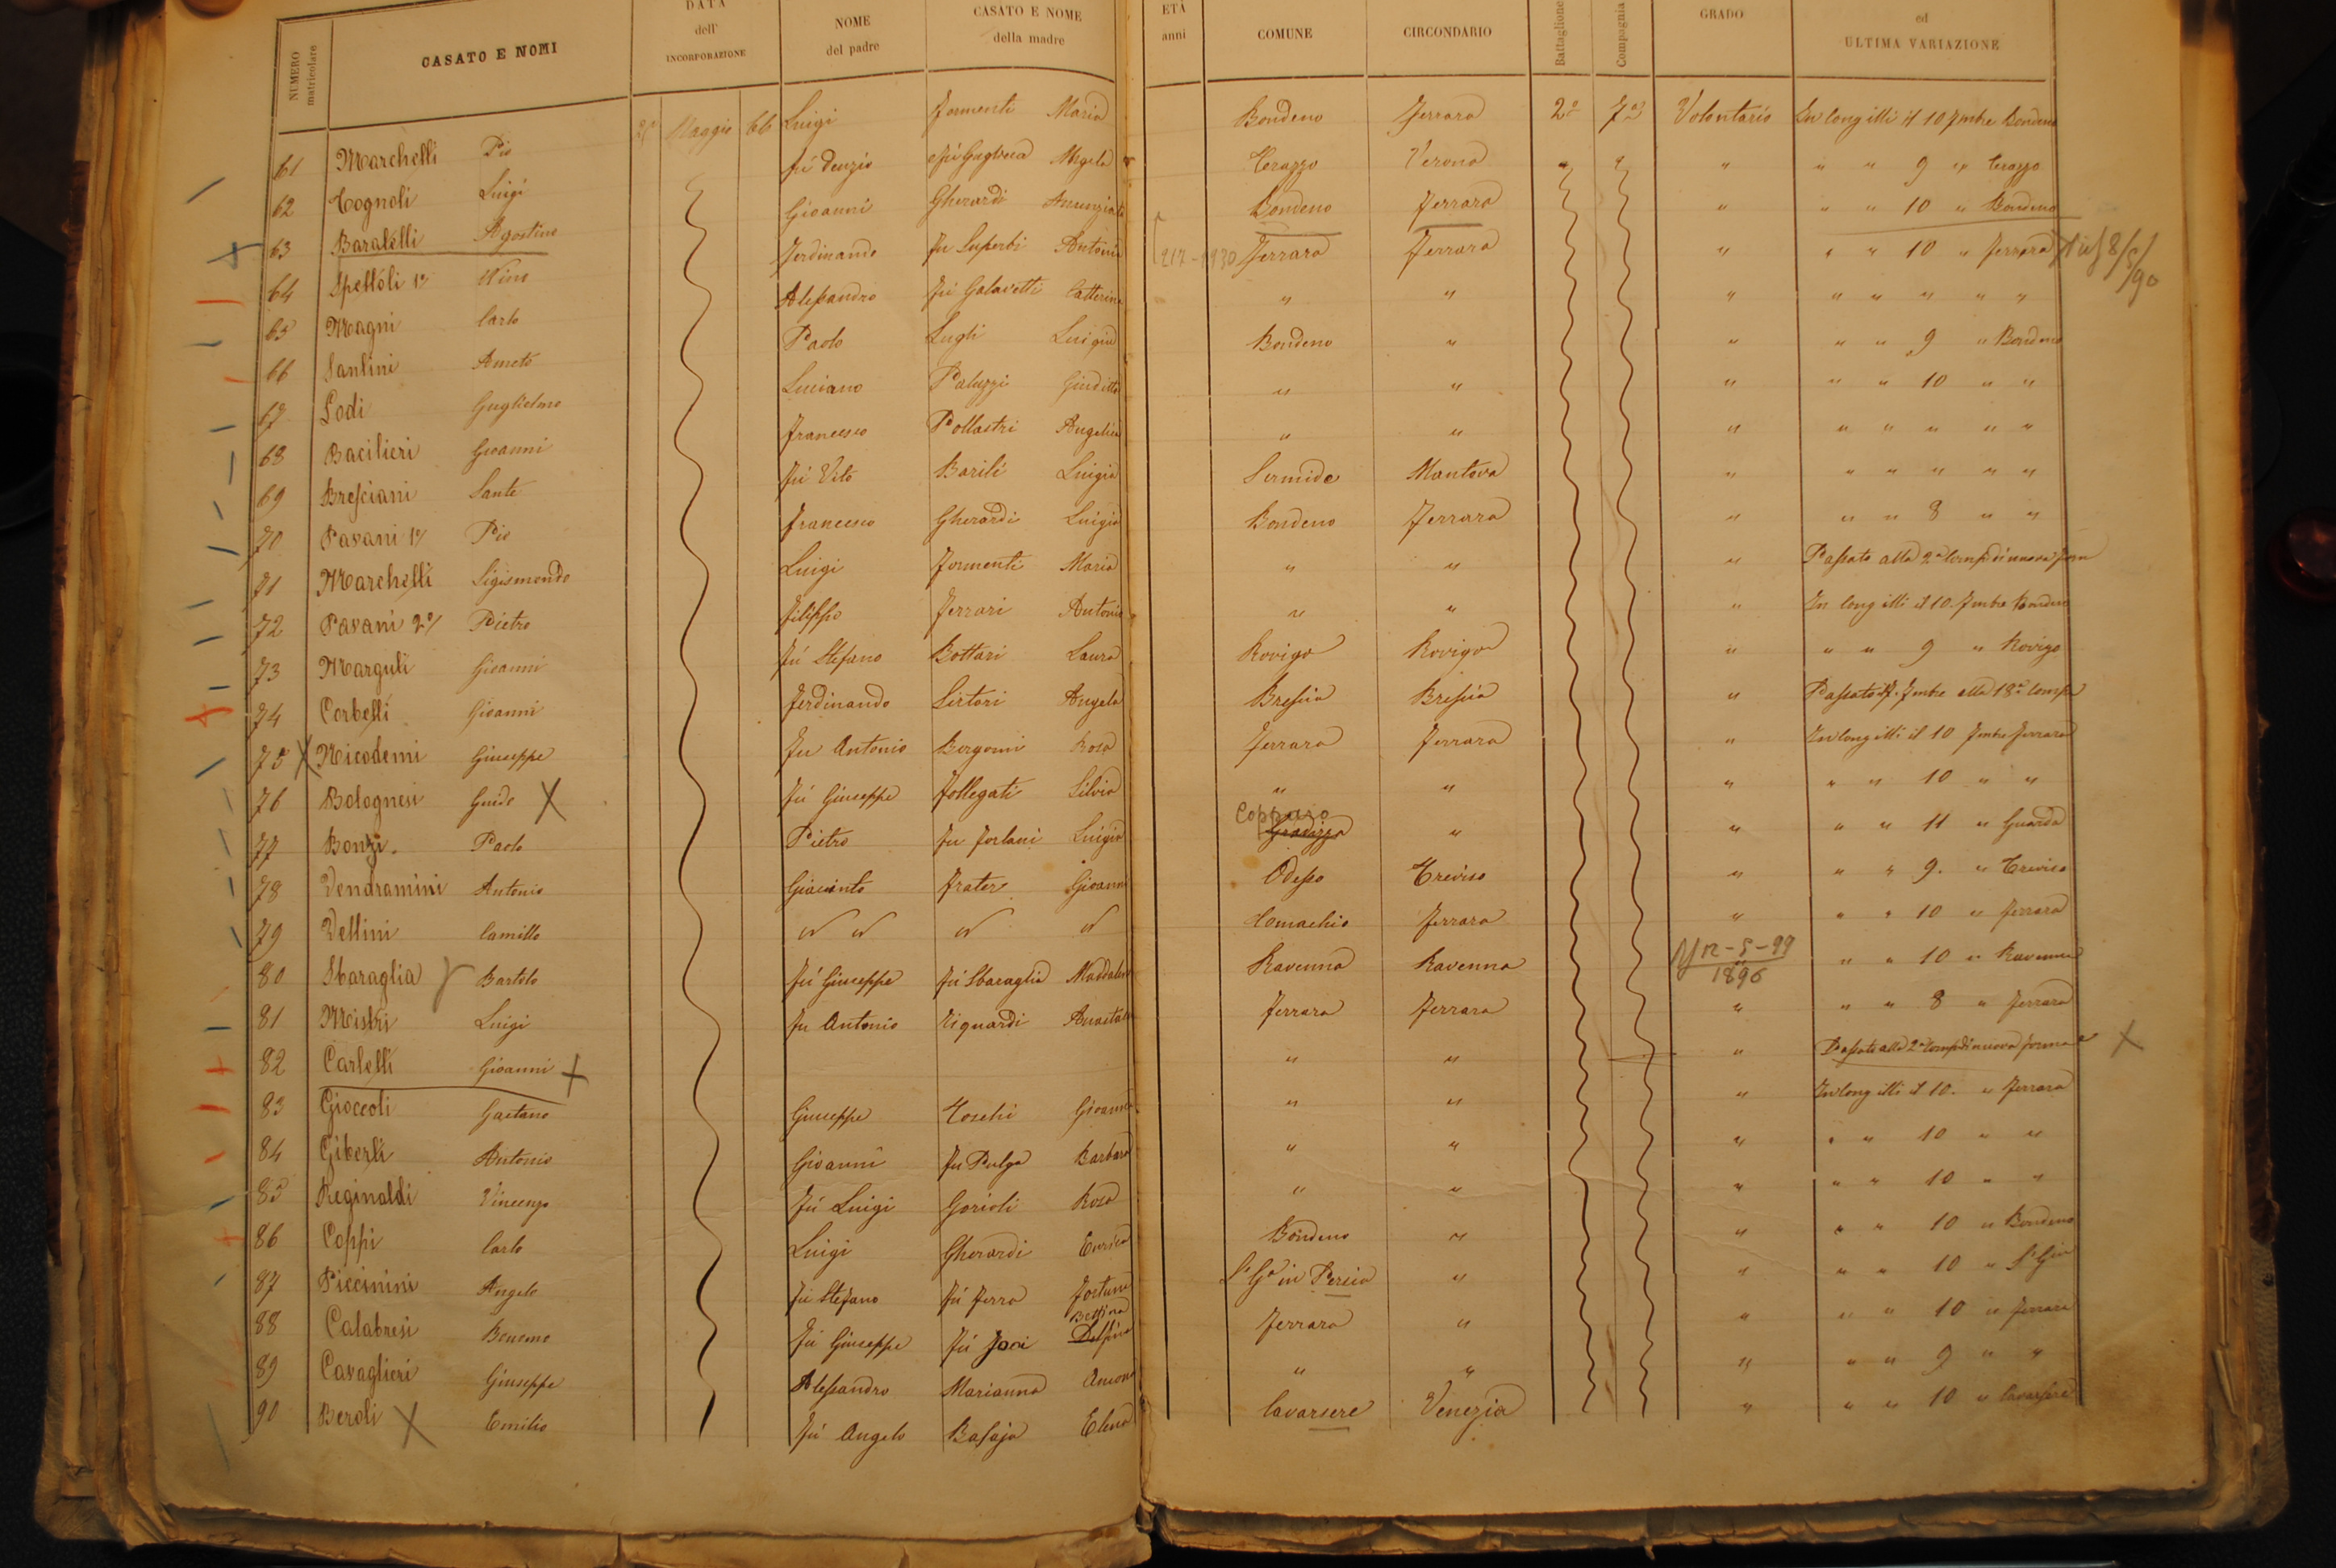 NUMERO matricolare CASATO E NOMI DATA dell' INCORPORAZIONE NOME del padre CASATO E NOME della madre ETÀ anni COMUNE CIRCONDARIO Battaglione Compagnia GRADO ed ULTIMA VARIAZIONE
61 Marchelli Pio Maggio 66 Luigi Formenti Maria Bondeno Ferrara 2° 7a Volontario In long illi il 10 7mbre Bondeno
62 Tognoli Luigi fù Angela Terazzo Verona " " " " " 9 " Terazzo
63 Baratelli Agostino Gioanni Gherardi Anunziata Bondeno Ferrara " " " 10 " Bondeno
64 Spettoli 1° Nino Ferdinando Fu Superbi Antonia 217-1930 Ferrara Ferrara " " " 10 " Ferrara 8/5/90
65 Magni Carlo Alessandro Fù Galavetti Catterina " " " " " " " "
66 Santini Ameto Paolo Lughi Luigia Bondeno " " " " 9 " Bondeno
67 Lodi Guglielmo Luciano Paluzzi Giuditta " " " " " 10 " "
68 Bacilieri Gioanni Francesco Pollastri Angelica " " " " " " " "
69 Bresciani Sante Fù Vito Barili Luigia Sermide Mantova " " " " " "
70 Pavani 1° Pio Francesco Gherardi Luigia Bondeno Ferrara " " " 8 " "
71 Marchelli Sigismondo Luigi Formenti Maria " " " Passato alla 2a Comp di nuova form
72 Pavani 2° Pietro Filippo Ferrari Antonia " " " In long illi il 10. 7mbre Bondeno
73 Marguli Gioanni Fù Stefano Bottari Laura Rovigo Rovigo " " " 9 " Rovigo
74 Corbelli Gioanni Ferdinando Sirtori Angela Brescia Brescia " Passato 7mbre alla 18a Compa
75 X Nicodemi Giuseppe Fu Antonio Bergomi Rosa Ferrara Ferrara " In long illi il 10 7mbre Ferrara
76 Bolognesi Guido X Fù Giuseppe Follegati Silvia " " " " " 10 " "
77 Bonzi Paolo Pietro Fu Forlani Luigia Copparo " " " " 11 " Guarda
78 Vendramini Antonio Giacinto Frater Gioanna Odesso Treviso " " " 9. " Treviso
79 Vellini Camillo " " " " Comachio Ferrara " " " 10 " Ferrara
80 Sbaraglia Bartolo Fù Giuseppe Fù Sbaraglia Maddalena Ravenna Ravenna 12-5-99 1896 " " " 10 " Ravenna
81 Mistri Luigi Fu Antonio Riguardi Ferrara Ferrara " " " 8 " Ferrara
82 Carletti Gioanni X " " " Passato alla 2a Comp di nuova forma X
83 Gioccoli Gaetano Giuseppe Toschi Gioanna " " " In long illi il 10. " Ferrara
84 Giberti Antonio Gioanni Fu Pulga Barbara " " " " " 10 " "
85 Reginaldi Vincenzo Fù Luigi Gorioli Rosa " " " " " 10 " "
86 Coppi Carlo Luigi Gherardi Enrica Bondeno " " " " 10 " Bondeno
87 Piccinini Angelo Fù Stefano Fù Ferra Fortuna S. Gio in Persico " " " " 10 " S. Gio
88 Calabresi Bonomo Fù Giuseppe Fù Jani Bettina Delfina Ferrara " " " " 10 " Ferrara
89 Cavaglieri Giuseppe Alessandro Marianna Ancona " " " " " 9 " "
90 Beroli X Emilio Fù Angelo Basaja Elena Cavarsere Venezia " " " 10 " Cavarsere